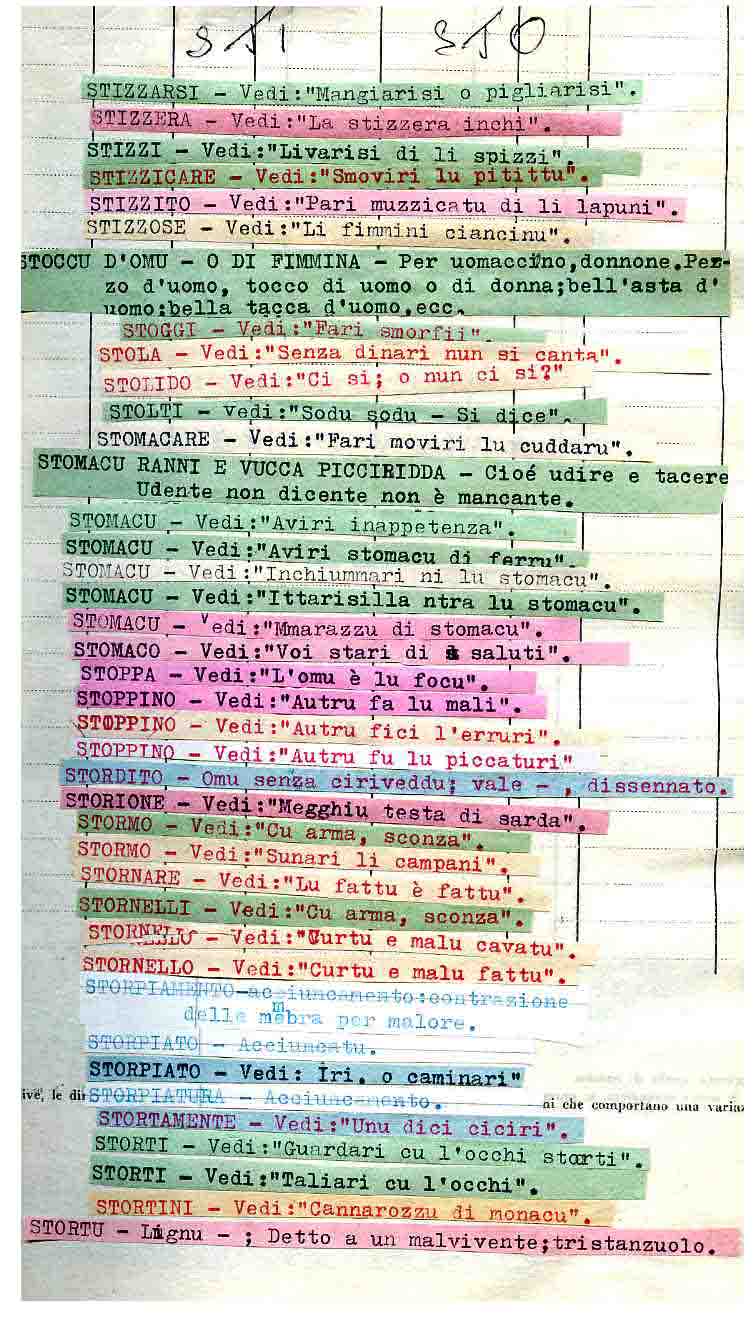 STI STO
STIZZARSI - Vedi:"Mangiarisi o pigliarisi".
STIZZERA - Vedi:"La stizzera inchi".
STIZZI - Vedi:"Livarisi di li spizzi".
STIZZICARE - Vedi:"Smoviri lu pitittu".
STIZZITO - Vedi:"Pari muzzicatu di li lapuni".
STIZZOSE - Vedi:"Li fimmini ciancinu".
STOCCU D'OMU - O DI FIMMINA - Per uomaccino,donnone.Pez-
zo d'uomo, tocco di uomo o di donna;bell'asta d'
uomo;bella tacca d'uomo,ecc.
STOGGI - Vedi:"Fari smorfii".
STOLA - Vedi:"Senza dinari nun si canta".
STOLIDO - Vedi:"Ci si; o nun ci si?"
STOLTI - Vedi:"Sodu sodu - Si dice".
STOMACARE - Vedi:"Fari moviri lu cuddaru".
STOMACU RANNI E VUCCA PICCIRIDDA - Cioé udire e tacere
Udente non dicente non è mancante.
STOMACU - Vedi:"Aviri inappetenza".
STOMACU - Vedi:"Aviri stomacu di ferru".
STOMACU - Vedi:"Inchiummari ni lu stomacu".
STOMACU - Vedi:"Ittarisilla ntra lu stomacu".
STOMACU - Vedi:"Mmarazzu di stomacu".
STOMACO - Vedi:"Voi stari di saluti".
STOPPA - Vedi:"L'omu è lu focu".
STOPPINO - Vedi:"Autru fa lu mali".
STOPPINO - Vedi:"Autru fici l'erruri".
STOPPINO - Vedi:"Autru fu lu piccaturi"
STORDITO - Omu senza ciriveddu; vale - , dissennato.
STORIONE - Vedi:"Megghiu testa di sarda".
STORMO - Vedi:"Cu arma, sconza".
STORMO - Vedi:"Sunari li campani".
STORNARE - Vedi:"Lu fattu è fattu".
STORNELLI - Vedi:"Cu arma, sconza".
STORNELLO - Vedi:"Curtu e malu cavatu".
STORNELLO - Vedi:"Curtu e malu fattu".
STORPIAMENTO-acciuncamento:contrazione
delle membra per malore.
STORPIATO - Acciuncatu.
STORPIATO - Vedi: Iri, o caminari"
ive, le dir STORPIATURA - Acciuncamento. ni che comportano una varia
STORTAMENTE - Vedi:"Unu dici ciciri".
STORTI - Vedi:"Guardari cu l'occhi storti".
STORTI - Vedi:"Taliari cu l'occhi".
STORTINI - Vedi:"Cannarozzu di monacu".
STORTU - Lignu - ; Detto a un malvivente;tristanzuolo.